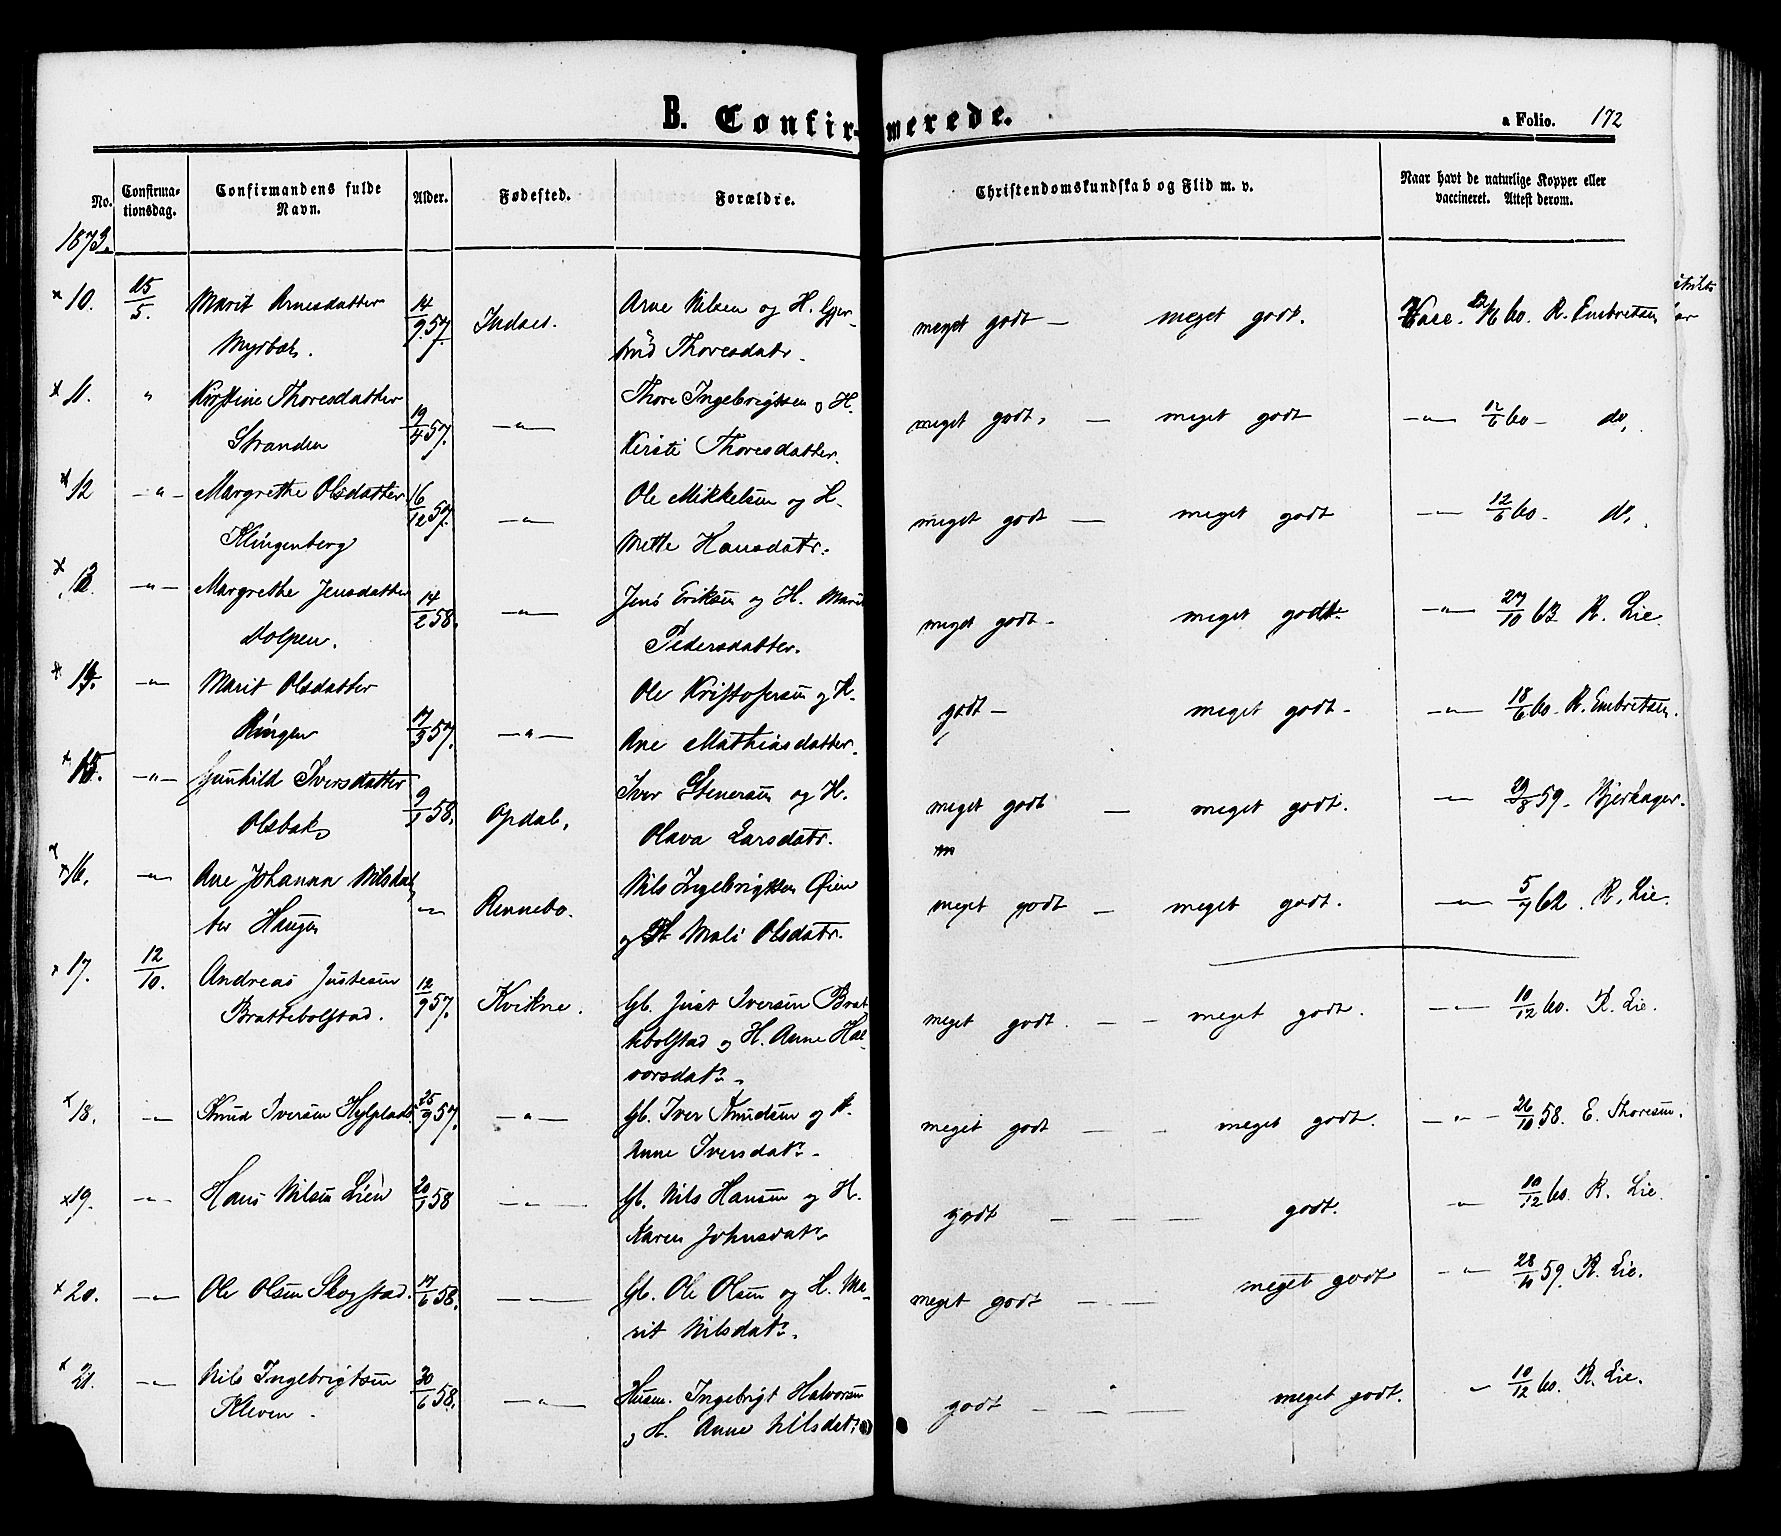 B. Confirmerede.
a Folio. 172
No. Confirmationsdag. Confirmandens fulde Navn. Alder. Fødested. Forældre. Christendomskundskab og Flid m. v. Naar havt de naturlige Kopper eller vaccineret. Attest derom.
1873.
× 10. 25/5. Marit Arnesdatter 14/9 57. Indset. Arne Nilsen og H. Gjer- meget godt — meget godt. Vacc. 12/6 60. R. Embretsen
Myrbak. trud Thoresdatr.
× 11. " Kirstine Thoresdatter 19/4 57. —"— Thore Ingebrigtsen og H. meget godt, — meget godt —"— 12/6 60 — do.
Stranden Kirsti Thoresdatter.
× 12 —"— Margrethe Olsdatter 16/12 57. —"— Ole Mikkelsen og H. meget godt — meget godt —"— 12/6 60 — do.
Klingenberg Mette Hansdatr.
× 13 —"— Margrethe Jensdatter 14/2 58. —"— Jens Eriksen og H. Marit meget godt — meget godt. —"— 27/10 63 R. Lie.
Dolpen. Pedersdatter.
× 14. —"— Marit Olsdatter Ole Kristofersen og H. godt — meget godt — —"— 18/6 60. R. Embretsen.
Ringen 17/3 57. —"— Ane Mathiasdatter.
× 15. —"— Gunhild Iversdatter 9/1 58. Opdal. Iver Stenersen og H. meget godt — meget godt. —"— 29/8 59. Bjerkager.
Olsbak Olava Larsdatr.
× 16. —"— Ane Johanna Nilsdat- —"— Rennebo. Nils Ingebrigtsen Øien meget godt — meget godt. —"— 5/7 62. R. Lie.
ter Haugen og H. Mali Olsdatr.
× 17. 12/10. Andreas Justesen 12/9 57. Kvikne. Gb. Just Iversen Brat- meget godt. — — meget godt. —"— 10/12 60. R. Lie.
Brattebolstad. tebolstad og H. Anne Hal-
vorsdatr.
× 18. —"— Knud Iversen Hylplads. 25/9 57. —"— Gb. Iver Knudsen og H. meget godt — — meget godt. —"— 26/10 58. E. Thoresen.
Anne Iversdatr.
× 19. —"— Hans Nilsen Lien 20/1 58 —"— Gb. Nils Hansen og H. godt — — — godt. —"— 10/12 60. R. Lie.
Karen Johnsdatr.
× 20. —"— Ole Olsen Skogstad. 17/6 58. —"— Gb. Ole Olsen og H. Ma- meget godt — — meget godt —"— 28/10 59. R. Lie.
rit Nilsdatr.
× 21. —"— Nils Ingebrigtsen 30/6 58. —"— Husm. Ingebrigt Halvorsen godt — " — meget godt. —"— 10/12 60. R. Lie.
Kleven. og H. Anne Nilsdatr.